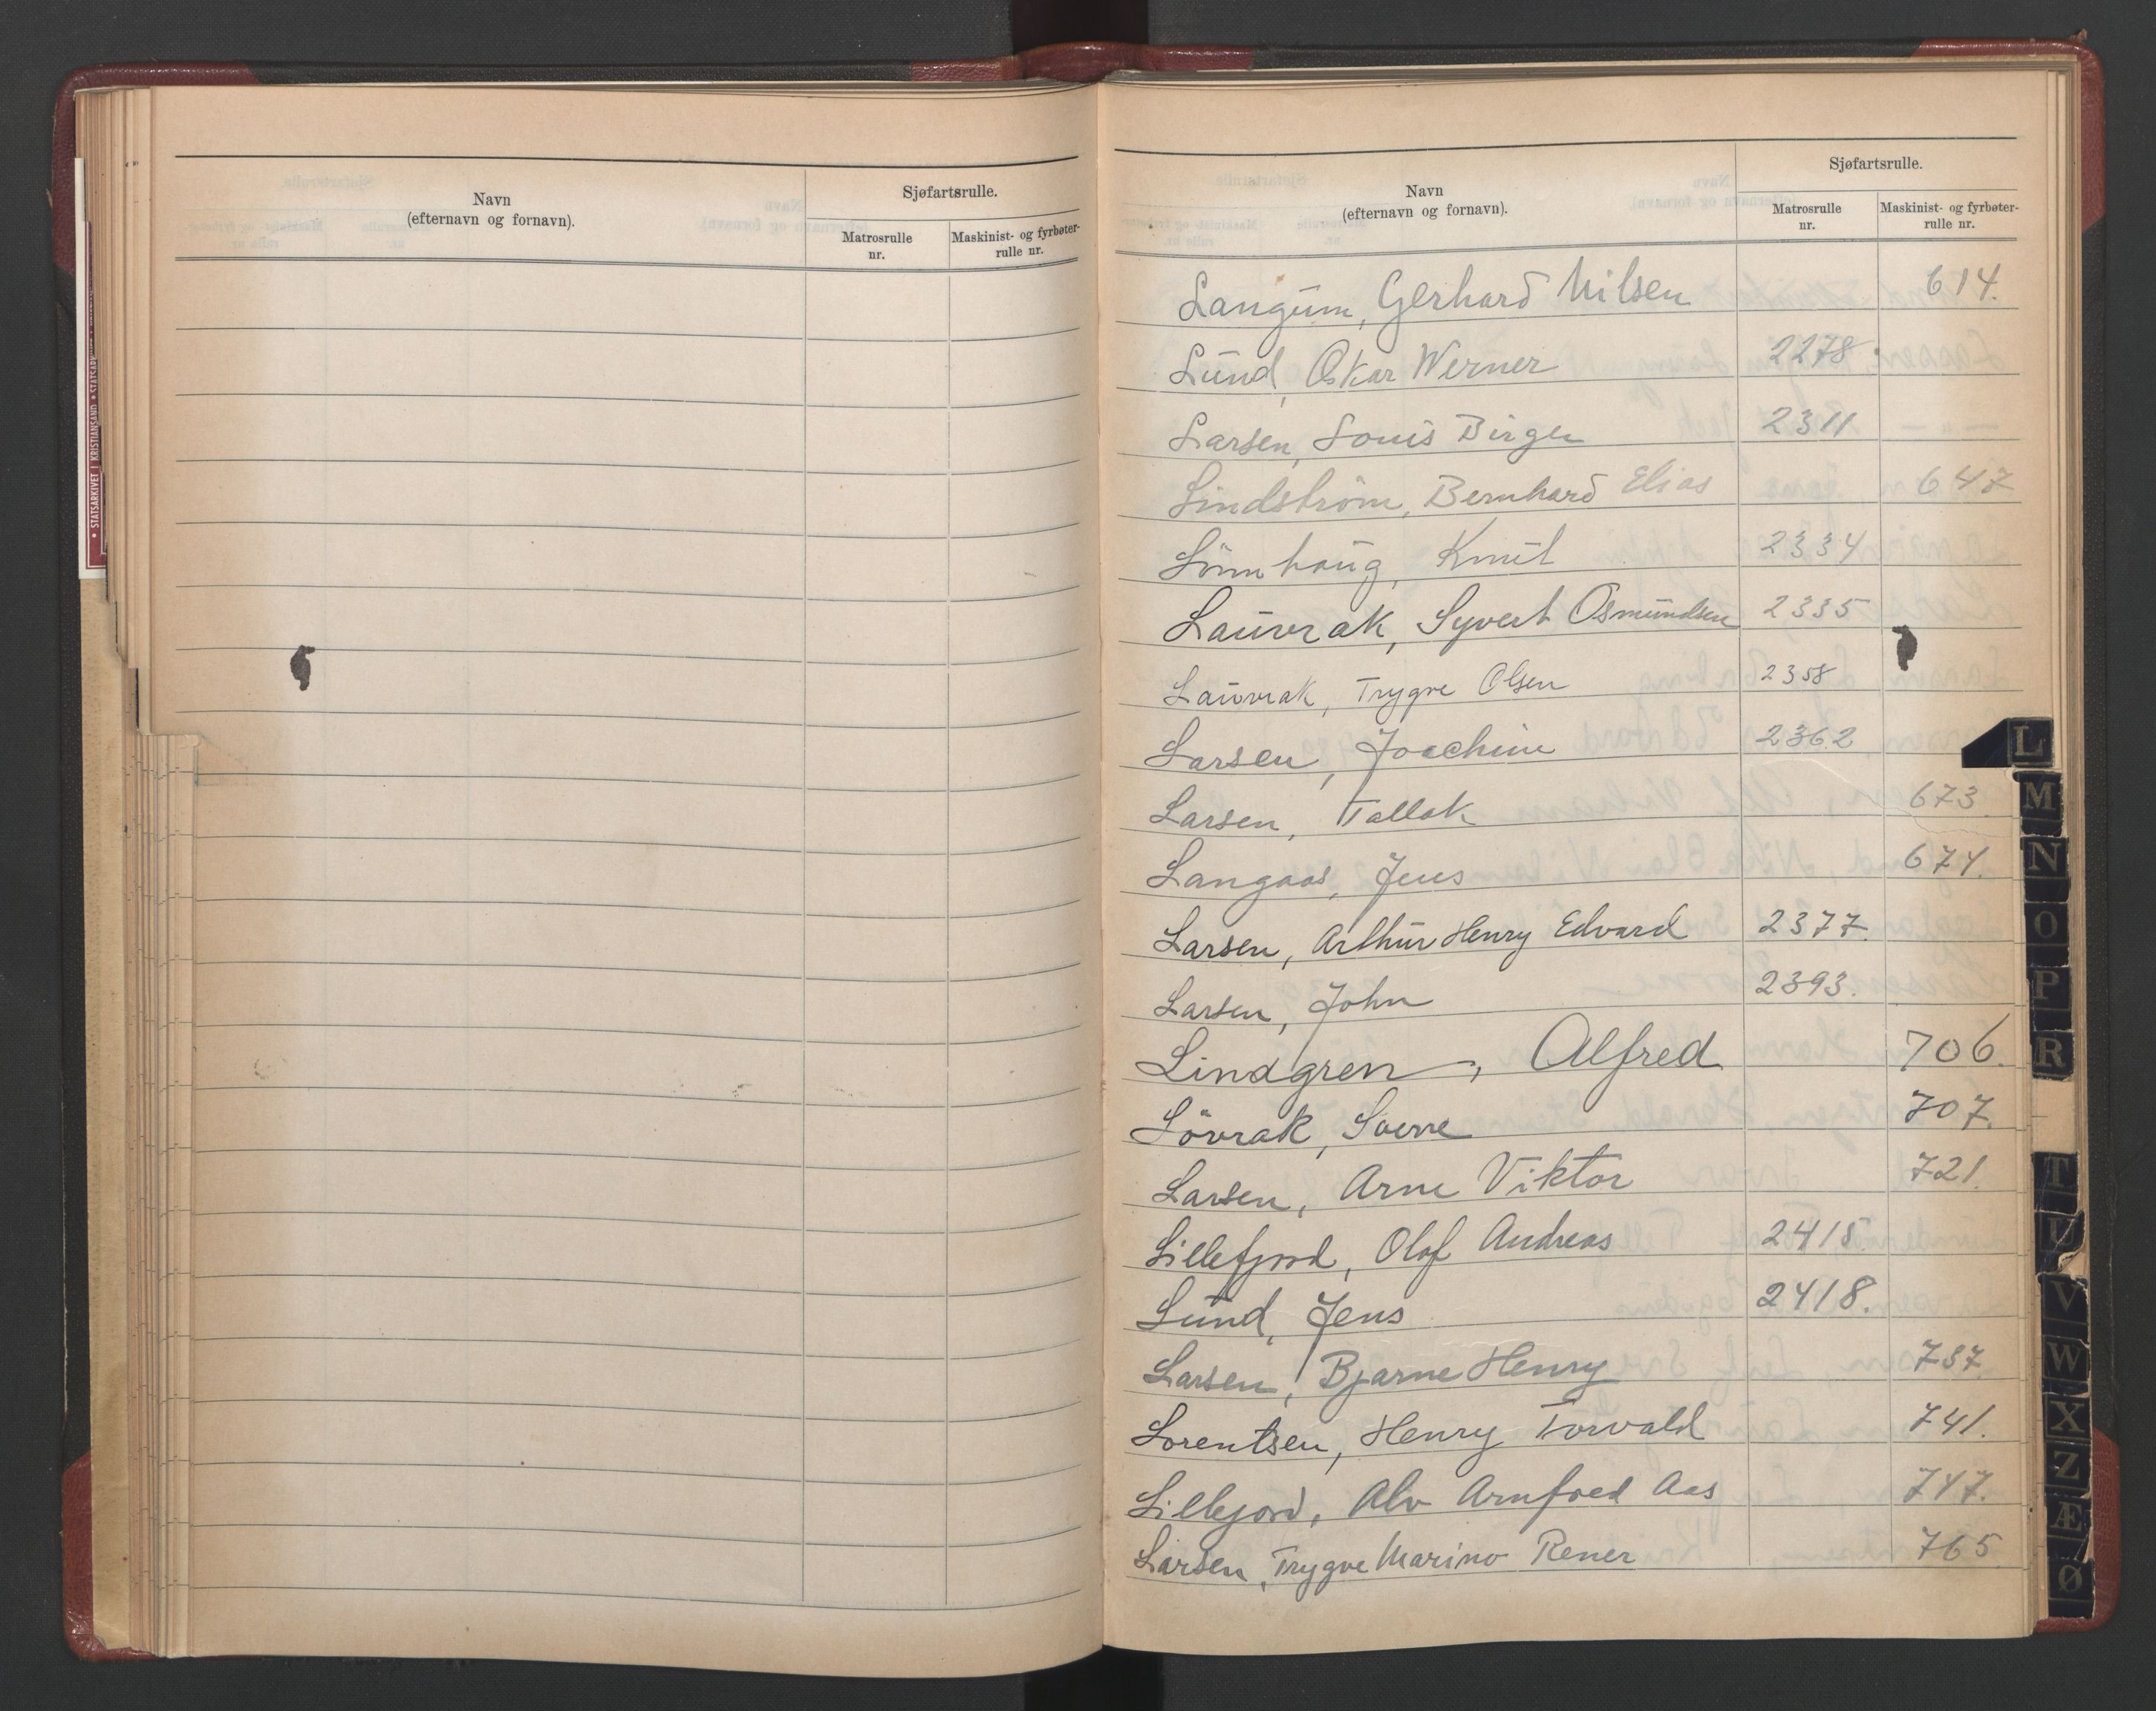 Navn
(efternavn og fornavn).
Sjøfartsrulle.
Matrosrulle
nr.
Maskinist- og fyrbøter-
rulle nr.
• STATSARKIVET I KRISTIANSAND •
Navn
(efternavn og fornavn).
Sjøfartsrulle.
Matrosrulle
nr.
Maskinist- og fyrbøter-
rulle nr.
Langum, Gerhard Nilsen 614.
Lund, Oskar Werner 2278
Larsen, Louis Birger 2311
Lindström, Bernhard Elias 647
Knut 2334
Lauvrak, Syvert Osmundsen 2335
Lauvrak, Trygve Olsen 2358
Larsen, Joachim 2362
Larsen, Tallak 673
Langaas, Jens 674.
Larsen, Arthur Henry Edvard 2377.
Larsen, John 2393.
Lindgren, Alfred 706.
Lövrak, Sverre 707.
Larsen, Arne Viktor 721.
Lillefjord, Olaf Andreas 2415
Lund, Jens 2418.
Larsen, Bjarne Henry 737.
Lorentsen, Henry Torvald 741.
Lillejord, Alv Arnfred Aas 747.
Larsen, Trygve Marino Rener 765
L
M
N
O
P
R
T
U
V
W
X
Z
Æ
Ø